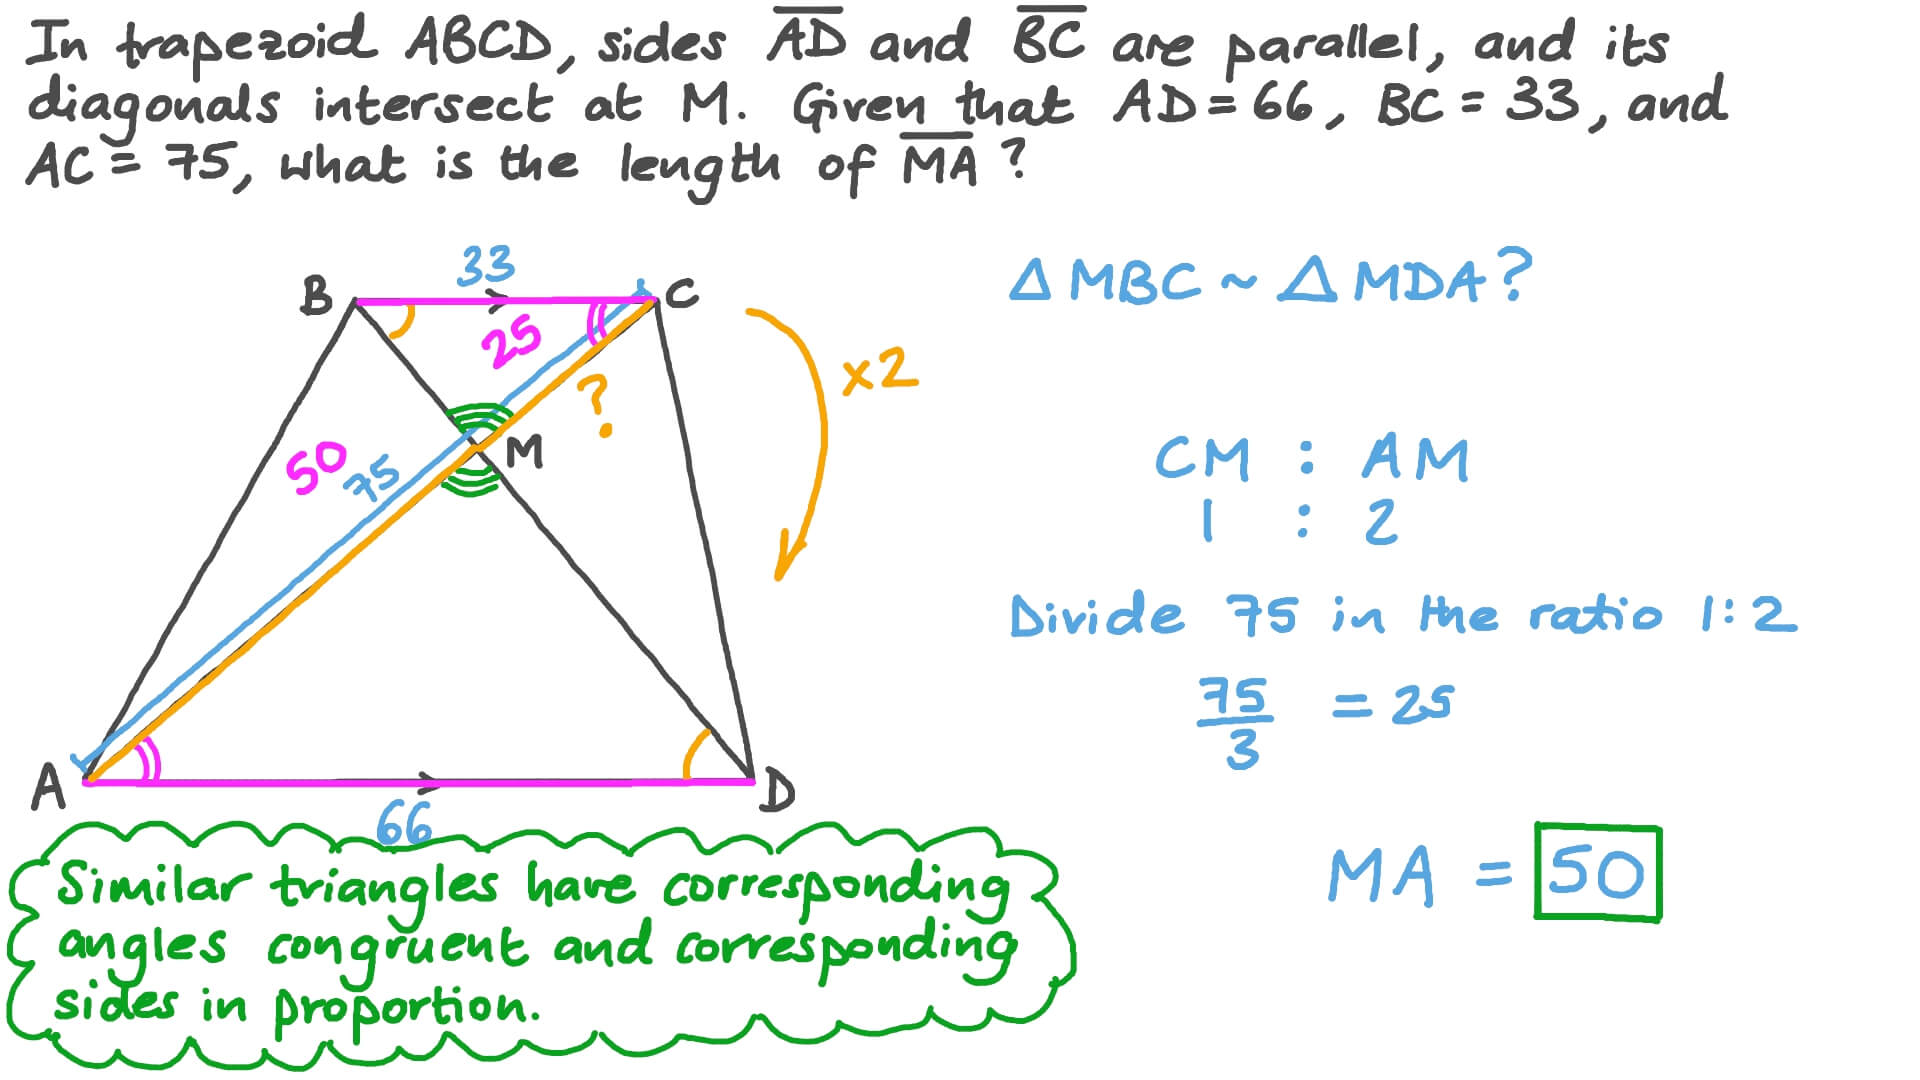 In trapezoid ABCD, sides AD and BC are parallel, and its
diagonals intersect at M. Given that AD = 66, BC = 33, and
AC = 75, what is the length of MA?
33
B
C
25
?
M
50
75
A
D
66
×2
△MBC ~ △MDA?
CM : AM
1 : 2
Divide 75 in the ratio 1:2
75/3 = 25
MA = 50
Similar triangles have corresponding
angles congruent and corresponding
sides in proportion.